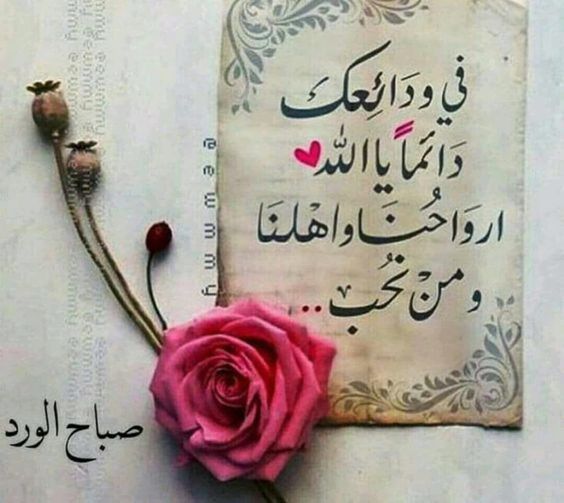 في ودَائِعك
دَائماً يا الله
اروَاحُنَا واهْلنَا
ومنْ نحُب ..
صباح الورد
@ewmmy